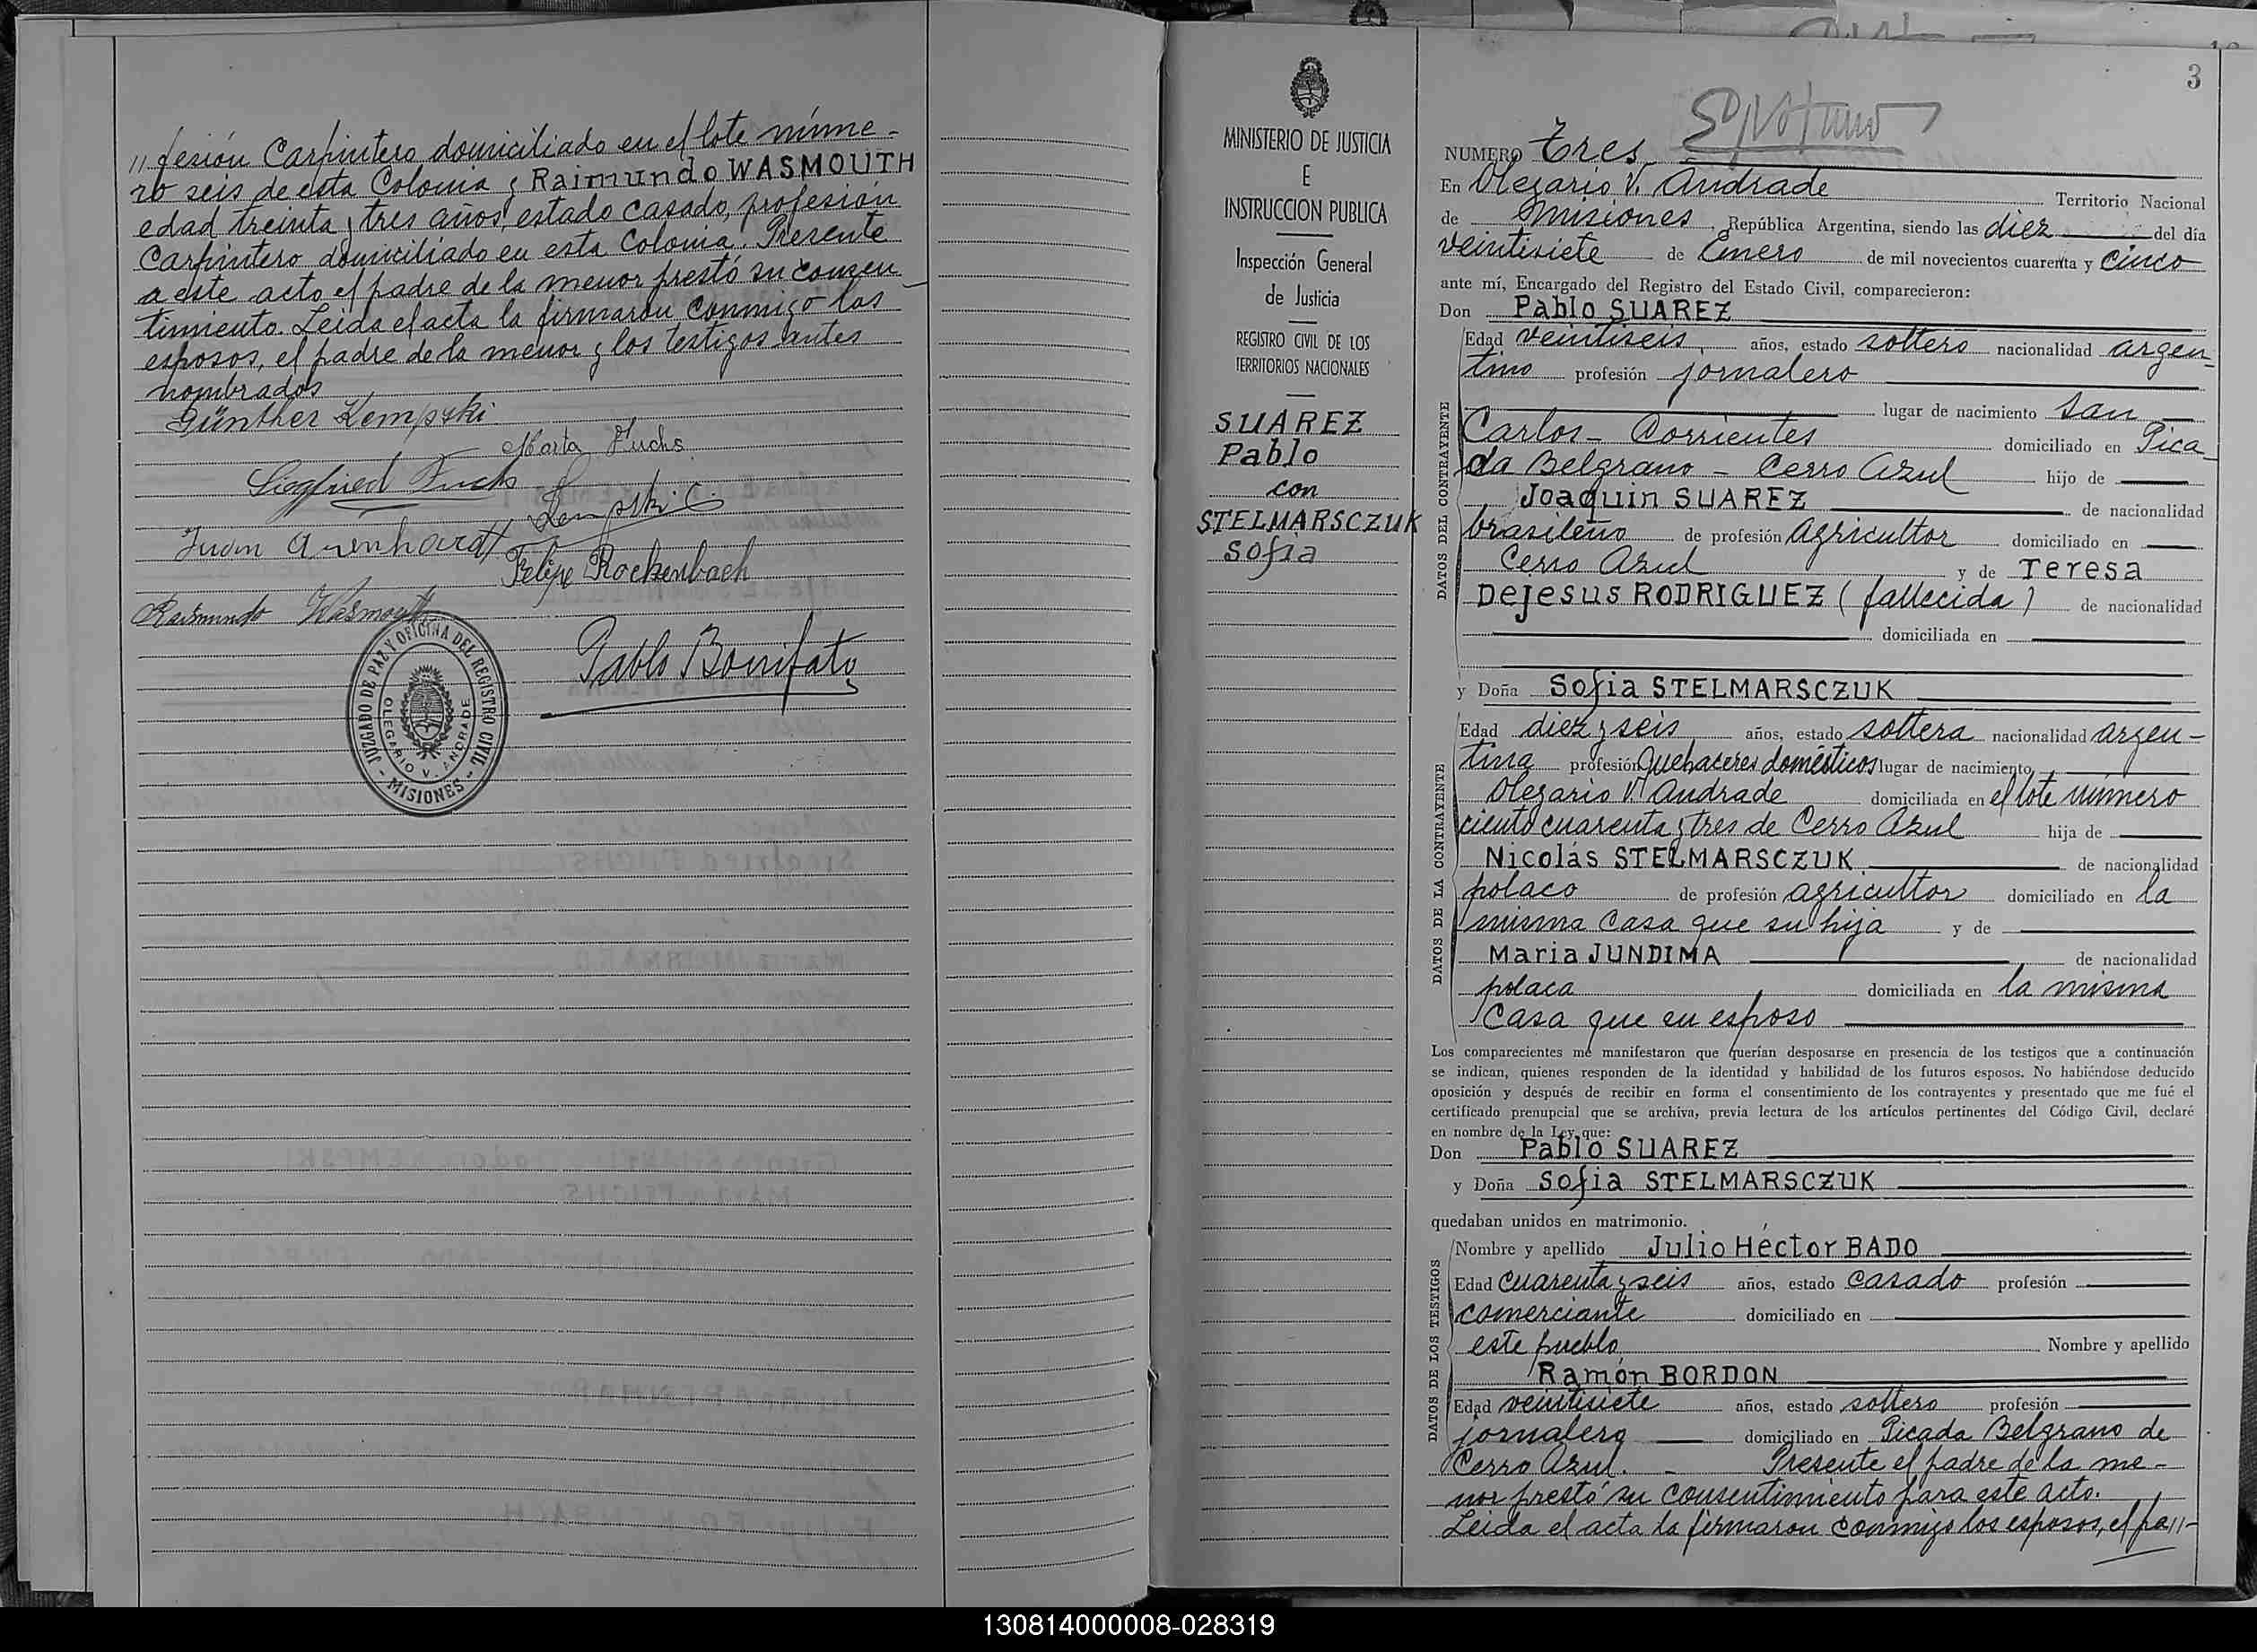 // fesión Carpintero domiciliado en el lote núme-
ro seis de esta Colonia y Raimundo WASMOUTH
edad treinta y tres años, estado casado, profesión
Carpintero domiciliado en esta Colonia. Presente
a este acto el padre de la menor prestó su consen-
timiento. Leida el acta la firmaron conmigo los
esposos, el padre de la menor y los testigos antes
nombrados
Günther Kempski
Marta Fuchs
Siegfried Fuchs
Kempski C.
Juan Arenhardt
Felipe Rockenbach
Raimundo Wasmouth
Pablo Bonifato
JUZGADO DE PAZ Y OFICINA DEL REGISTRO CIVIL
OLEGARIO V. ANDRADE
- MISIONES -
MINISTERIO DE JUSTICIA
E
INSTRUCCION PUBLICA
Inspección General
de Justicia
REGISTRO CIVIL DE LOS
TERRITORIOS NACIONALES
SUAREZ
Pablo
con
STELMARSCZUK
Sofia
3
NUMERO Tres
En Olegario V. Andrade Territorio Nacional
de Misiones, República Argentina, siendo las diez del día
veintisiete de Enero de mil novecientos cuarenta y cinco
ante mí, Encargado del Registro del Estado Civil, comparecieron:
Don Pablo SUAREZ
DATOS DEL CONTRAYENTE
Edad veintiseis, años, estado soltero nacionalidad argen-
tino profesión jornalero
lugar de nacimiento San
Carlos - Corrientes domiciliado en Pica-
da Belgrano - Cerro Azul hijo de
Joaquin SUAREZ de nacionalidad
brasileño de profesión Agricultor domiciliado en
Cerro Azul y de Teresa
Dejesus RODRIGUEZ (fallecida) de nacionalidad
domiciliada en
y Doña Sofia STELMARSCZUK
DATOS DE LA CONTRAYENTE
Edad diez y seis años, estado soltera nacionalidad argen-
tina profesión Quehaceres domésticos lugar de nacimiento
Olegario V. Andrade domiciliada en el lote número
ciento cuarenta y tres de Cerro Azul hija de
Nicolás STELMARSCZUK de nacionalidad
polaco de profesión agricultor domiciliado en la
misma casa que su hija y de
Maria JUNDIMA de nacionalidad
polaca domiciliada en la misma
Casa que su esposo
Los comparecientes me manifestaron que querían desposarse en presencia de los testigos que a continuación
se indican, quienes responden de la identidad y habilidad de los futuros esposos. No habiéndose deducido
oposición y después de recibir en forma el consentimiento de los contrayentes y presentado que me fué el
certificado prenupcial que se archiva, previa lectura de los artículos pertinentes del Código Civil, declaré
en nombre de la Ley que:
Don Pablo SUAREZ
y Doña Sofia STELMARSCZUK
quedaban unidos en matrimonio.
DATOS DE LOS TESTIGOS
Nombre y apellido Julio Héctor BADO
Edad cuarenta y seis años, estado casado profesión
comerciante domiciliado en
este pueblo Nombre y apellido
Ramón BORDON
Edad veintisiete años, estado soltero profesión
jornalero domiciliado en Picada Belgrano de
Cerro Azul. - Presente el padre de la me-
nor prestó su consentimiento para este acto.
Leida el acta la firmaron conmigo los esposos, el pa//-
130814000008-028319